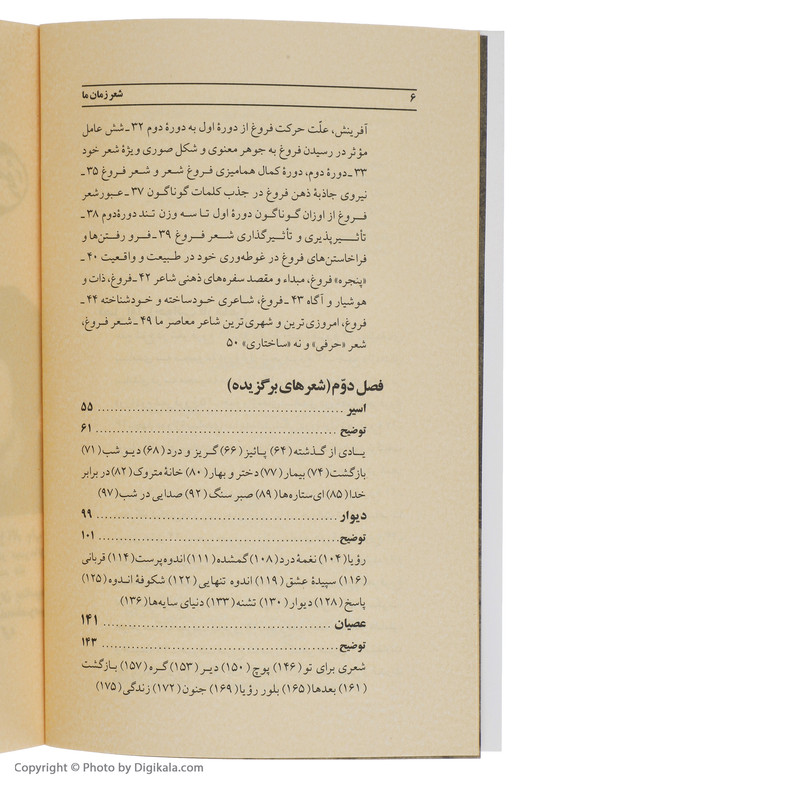 ۶ شعر زمان ما
آفرینش، علّت حرکت فروغ از دورهٔ اول به دورهٔ دوم ۳۲ـ شش عامل
مؤثر در رسیدن فروغ به جوهر معنوی و شکل صوری ویژهٔ شعر خود
۳۳ـ دورهٔ دوم، دورهٔ کمال همامیزی فروغ شعر و شعر فروغ ۳۵ـ
نیروی جاذبهٔ ذهن فروغ در جذب کلمات گوناگون ۳۷ـ عبور شعر
فروغ از اوزان گوناگون دورهٔ اول تا سه وزن تند دورهٔ دوم ۳۸ـ
تأثیرپذیری و تأثیرگذاری شعر فروغ ۳۹ـ فرو رفتن‌ها و
فراخاستن‌های فروغ در غوطه‌وری خود در طبیعت و واقعیت ۴۰ـ
«پنجره» فروغ، مبداء و مقصد سفره‌های ذهنی شاعر ۴۲ـ فروغ، ذات و
هوشیار و آگاه ۴۳ـ فروغ، شاعری خودساخته و خودشناخته ۴۴ـ
فروغ، امروزی‌ترین و شهری‌ترین شاعر معاصر ما ۴۹ـ شعر فروغ،
شعر «حرفی» و نه «ساختاری» ۵۰
فصل دوّم (شعرهای برگزیده)
اسیر ........ ۵۵
توضیح ........ ۶۱
یادی از گذشته (۶۴) پائیز (۶۶) گریز و درد (۶۸) دیو شب (۷۱)
بازگشت (۷۴) بیمار (۷۷) دختر و بهار (۸۰) خانهٔ متروک (۸۲) در برابر
خدا (۸۵) ای ستاره‌ها (۸۹) صبر سنگ (۹۲) صدایی در شب (۹۷)
دیوار ........ ۹۹
توضیح ........ ۱۰۱
رؤیا (۱۰۴) نغمهٔ درد (۱۰۸) گمشده (۱۱۱) اندوه‌پرست (۱۱۴) قربانی
(۱۱۶) سپیدهٔ عشق (۱۱۹) اندوه تنهایی (۱۲۲) شکوفهٔ اندوه (۱۲۵)
پاسخ (۱۲۸) دیوار (۱۳۰) تشنه (۱۳۳) دنیای سایه‌ها (۱۳۶)
عصیان ........ ۱۴۱
توضیح ........ ۱۴۳
شعری برای تو (۱۴۶) پوچ (۱۵۰) دیر (۱۵۳) گره (۱۵۷) بازگشت
(۱۶۱) بعدها (۱۶۵) بلور رؤیا (۱۶۹) جنون (۱۷۲) زندگی (۱۷۵)
Copyright © Photo by Digikala.com